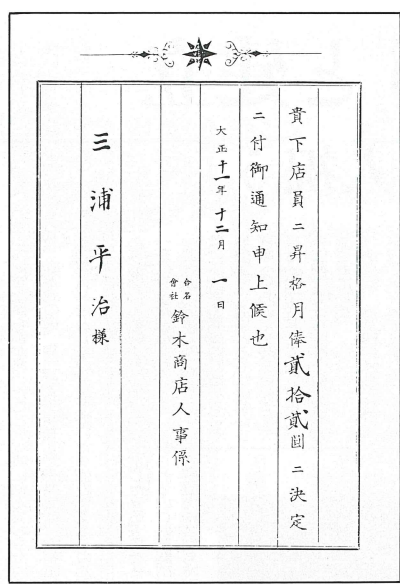 貴下店員ニ昇格月俸貳拾貳圓ニ決定
ニ付御通知申上候也
大正十一年十二月一日
合名會社鈴木商店人事係
三浦平治様